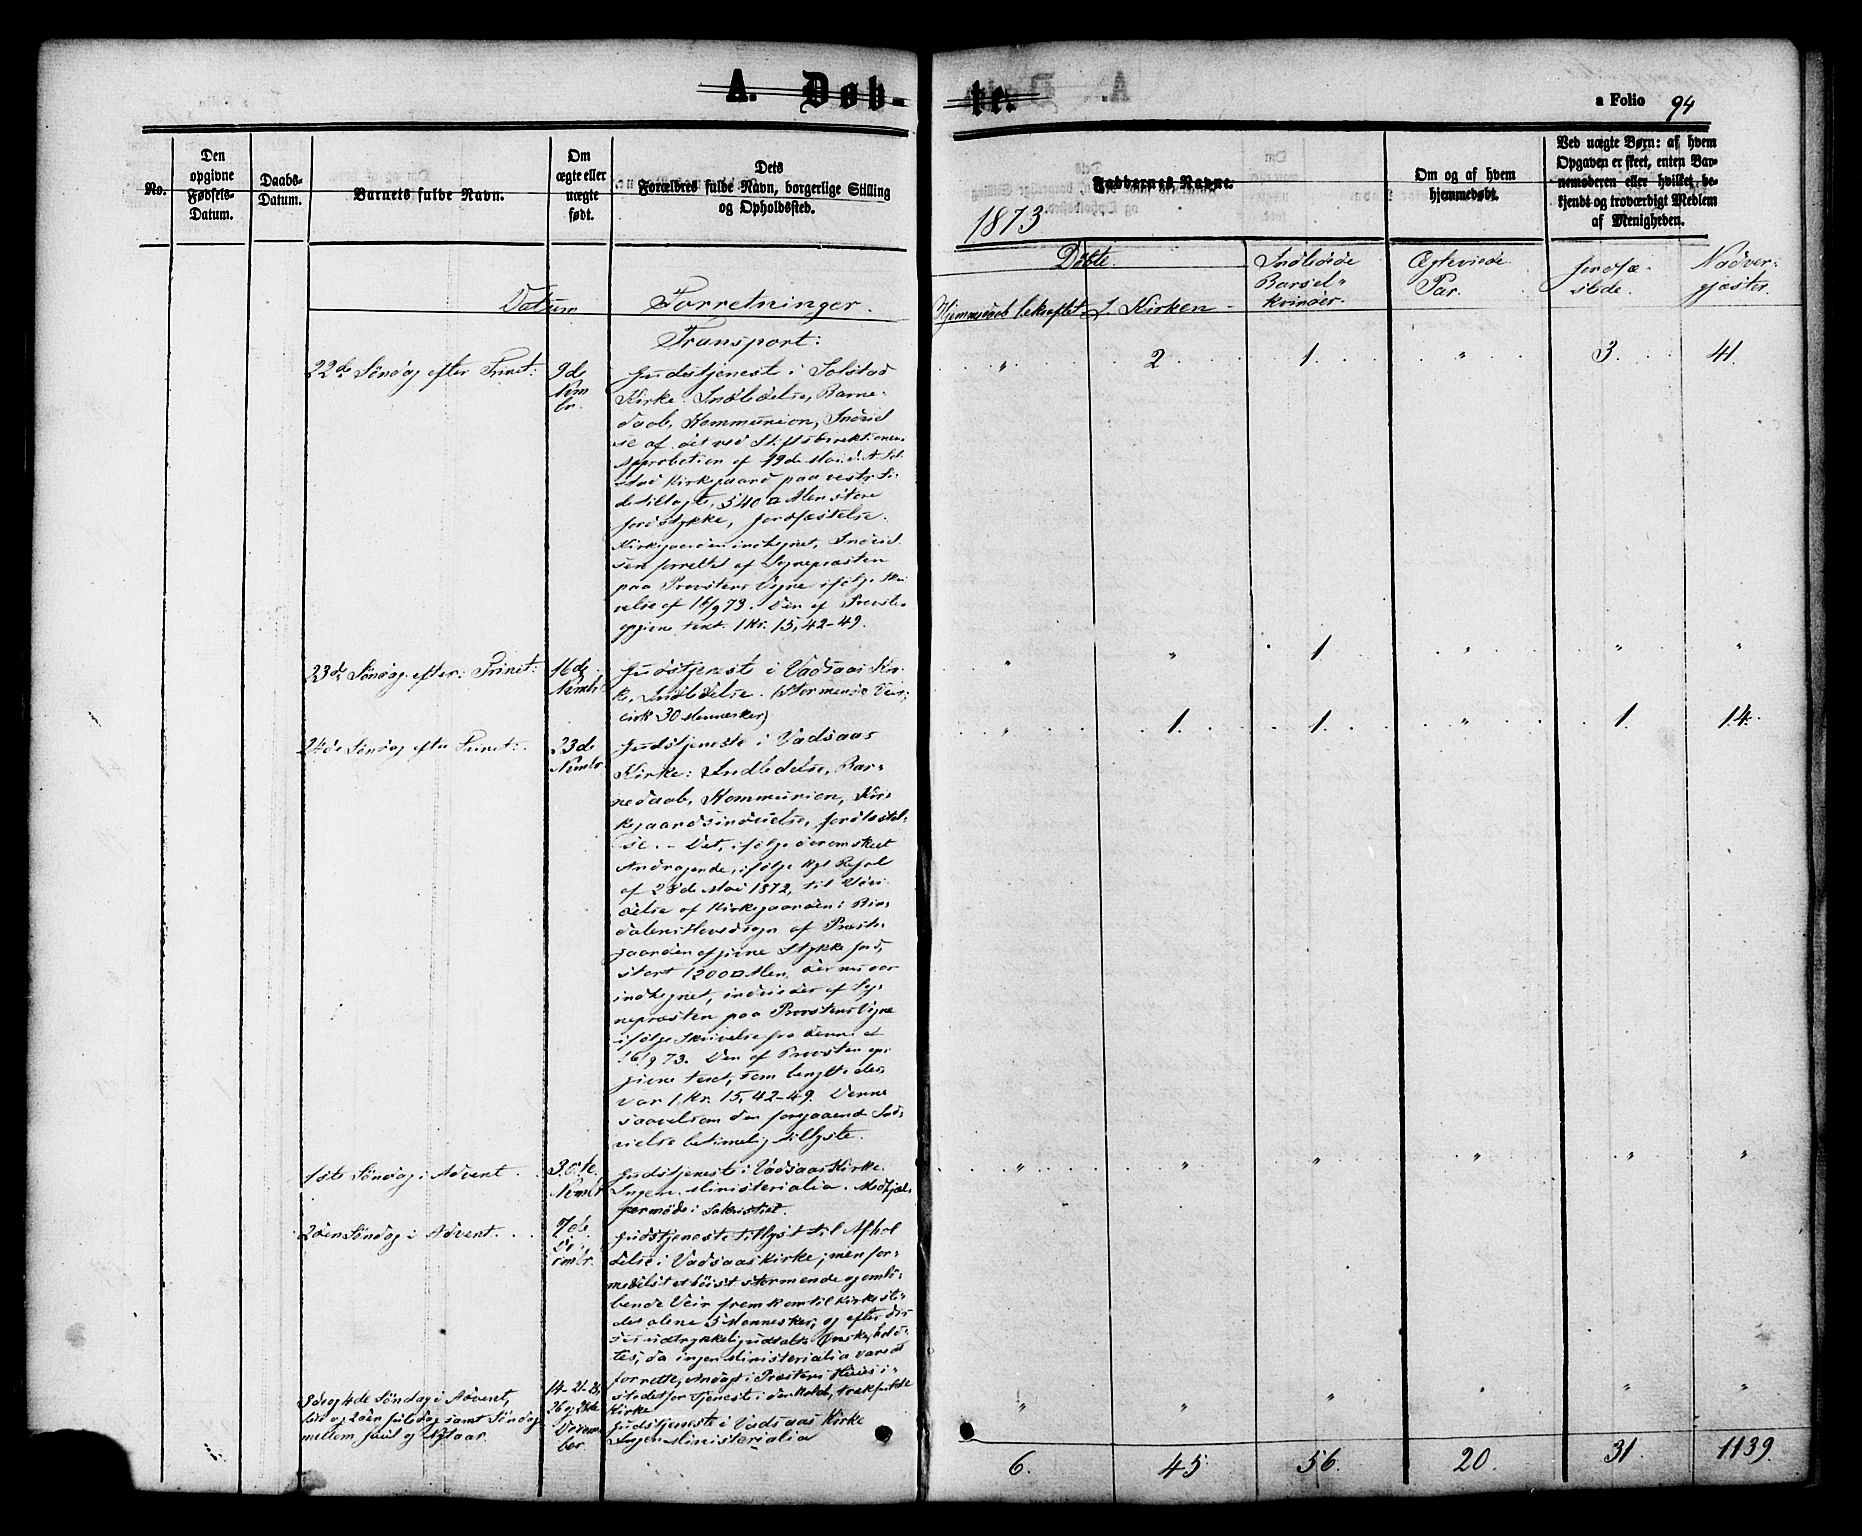 A. Døb-
te.
a Folio 94
No.
Den
opgivne
Fødsels-
Datum.
Daabs-
Datum.
Barnets fulde Navn.
Om
ægte eller
uægte
født.
Dets
Forældres fulde Navn, borgerlige Stilling
og Opholdssted.
Faddernes Navne.
Om og af hvem
hjemmedøbt.
Ved uægte Børn: af hvem
Opgaven er skeet, enten Bar-
nemoderen eller hvilket be-
kjendt og troværdigt Medlem
af Menigheden.
1873
Datum
Forretninger.
Døbte.
Hjemmedaab bekræftet.
I Kirken
Indledede
Barsel-
kvinder.
Ægteviede
Par.
Jordfæ-
stede.
Nadver-
gjæster.
Transport:
22de Søndag efter Trinet:
9de
Novm
br.
Gudstjeneste i Solstad
Kirke. Indledelse, Barne-
daab, Kommunion, Indviel
se af det ved Stiftsdirektionens
Approbation af 19de Mai d. A. Sol-
stad Kirkegaard paa vestr Si-
de tillagte, 540 □ Alen store
Jordstykke, Jordfæstelse.
Kirkegaarden indhegnet, Indviel
sen forrettet af Sognepræsten
paa Provstens Vegne ifølge Skri-
velse af 16/9 73. Den af Provsten
opgivne text. 1 Kr. 15, 42-49.
" 2 1 " 3 41
23de Søndag efter Trinet:
16de
Novmbr
Gudstjeneste i Vadsaas Kir-
ke, Indledelse. (Stormende Veir,
cirk 30 Mennesker)
" " 1 " " "
24de Søndag efter Trinet:
23de
Novmbr.
Gudstjeneste i Vadsaas
Kirke: Indledelse, Bar-
nedaab, Kommunion, Kir-
kegaardsindvielse, Jordfæstel-
se. - Det, ifølge derom skeet
Andragende, ifølge Kgl Resol
af 28de Mai 1872, til Udvi-
delse af Kirkegaarden i Bin-
dalens Hovedsogn af Præste-
gaarden afgivne Stykke Jord,
stort 1200 □ Alen, der nu var
indhegnet, indviedes af Sog-
nepræsten paa Provstens Vegne
ifølge Skrivelse fra denne af
16/9 73. Den af Provsten op-
givne text, som benyttedes
var 1 Kr. 15, 42-49. Denne
saavelsom den foregaaende Ind-
vielse betimelig tillyste.
" 1 1 " 1 14
1ste Søndag i Advent
30te
Novmbr
Gudstjeneste i Vadsaas Kirke.
Ingen Ministerialia. Medhjæl-
permøde i Sakristiet.
" " " " " "
2den Søndag i Advent.
7de
De-
cmbr.
Gudstjeneste tillyst til Afhol
delse i Vadsaas Kirke; men for-
medelst et høist stormende og omlø-
bende Veir fremkom til Kirkesté-
det alene 5 Mennesker; og efter dis-
ses udtrykkelig udtalte Ønske, holdt-
tes, da ingen Ministerialia var at
forrette, Andagt i Præstens Huus i-
stedetfor Tjeneste i den kolde, trækfulde
Kirke
3die og 4de Søndag i Advent,
1ste og 2den Juledag samt Søndag
mellem Juul og Nytaar.
14-21-25,
26 og 28de
Decem-
ber.
Gudstjeneste i Vadsaas Kirke
Ingen Ministerialia
" " " " " "
6. 45 56. 20. 31. 1139